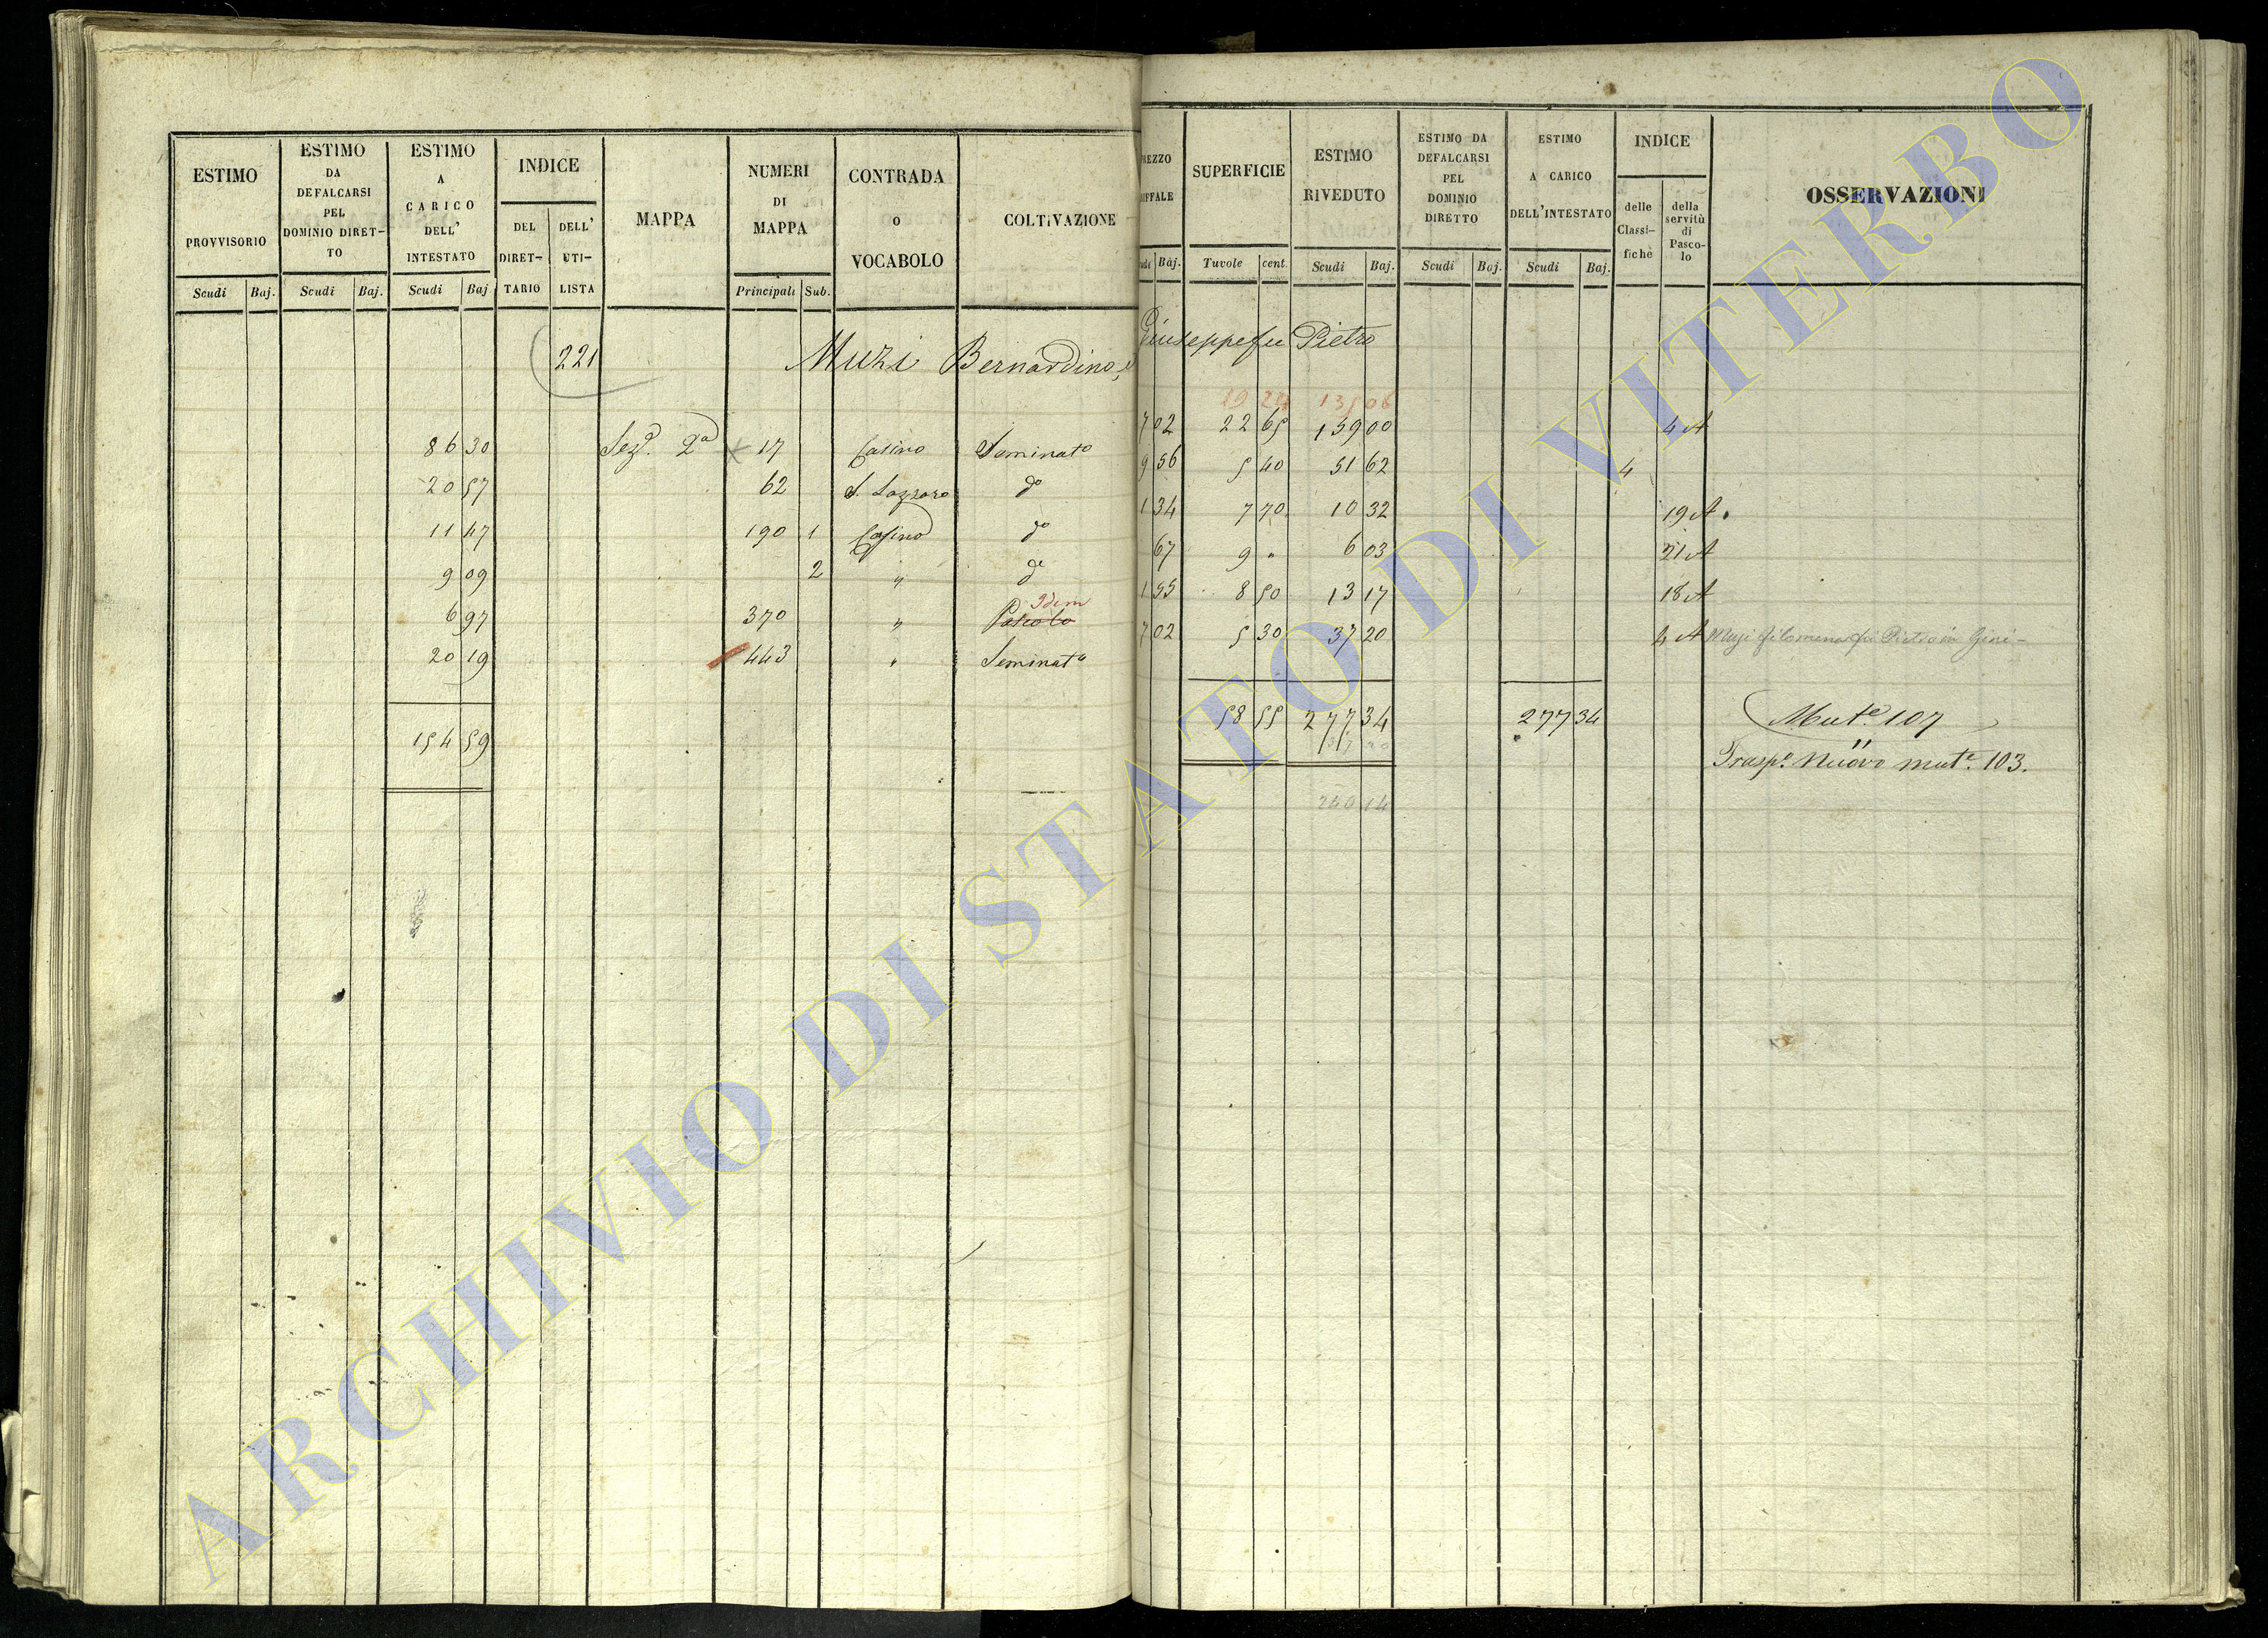 ESTIMO PROVVISORIO Scudi Baj.
ESTIMO DA DEFALCARSI PEL DOMINIO DIRET-TO Scudi Baj.
ESTIMO A CARICO DELL' INTESTATO Scudi Baj
INDICE DEL DIRET-TARIO DELL' UTI-LISTA
MAPPA
NUMERI DI MAPPA Principali Sub.
CONTRADA O VOCABOLO
COLTIVAZIONE
REZZO IFFALE udi Baj.
SUPERFICIE Tavole cent.
ESTIMO RIVEDUTO Scudi Baj.
ESTIMO DA DEFALCARSI PEL DOMINIO DIRETTO Scudi Baj.
ESTIMO A CARICO DELL'INTESTATO Scudi Baj.
INDICE delle Classi-fiche della servitù di Pasco-lo
OSSERVAZIONI
221 Muzi Bernardino, e Giuseppe fu Pietro
19 24 135 06
86 30 Sez.e 2a 17 Casino Seminato 7 02 22 65 159 00 4 A
20 57 62 S. Lazzaro do 9 56 5 40 51 62 4
11 47 190 1 Casino do 1 34 7 70 10 32 19 A
9 09 2 " do 67 9 " 6 03 21 A
6 97 370 " Pascolo Idem 1 55 8 50 13 17 18 A
20 19 443 " Seminato 7 02 5 30 37 20 4 A Muzi Filomena fu Pietro in Gini-
154 59 58 55 277 34 277 34 Mut.e 107
37 20 Trasp.o Nuovo mut.e 103.
240 14
ARCHIVIO DI STATO DI VITERBO